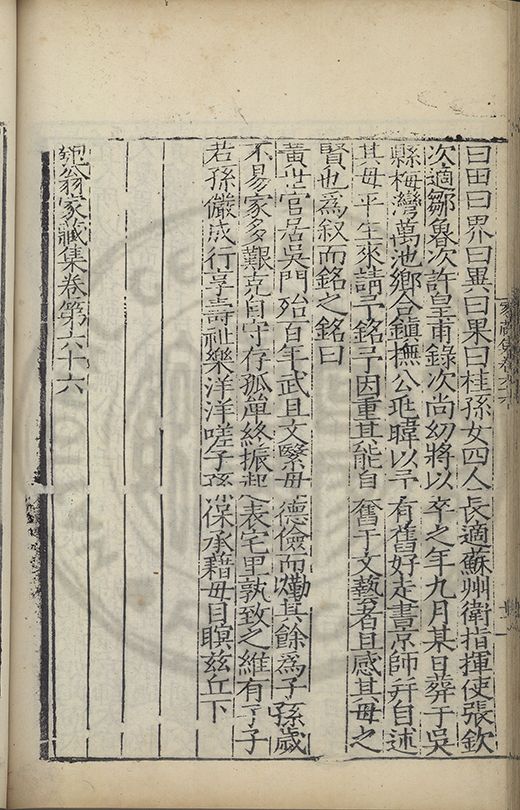 曰田曰界曰異曰果曰桂孫女四人長適蘇州衛指揮使張欽
次適鄒魯次許皇甫錄次尚幼將以卒之年九月某日葬于吳
縣梅灣萬池鄉合鎮撫公兆暐以予有舊好走書京師并自述
其母平生來請予銘予因重其能自奮于文藝者且感其母之
賢也為叙而銘之銘曰
黃世官居吳門殆百年武且文繄母德儉而懃其餘為子孫歲
不易家多艱克自守存孤單終振起表宅里孰致之維有子子
若孫儼成行享壽祉樂洋洋嗟子孫保承藉母目瞑兹丘下
匏翁家藏集卷第六十六
家藏集卷六六